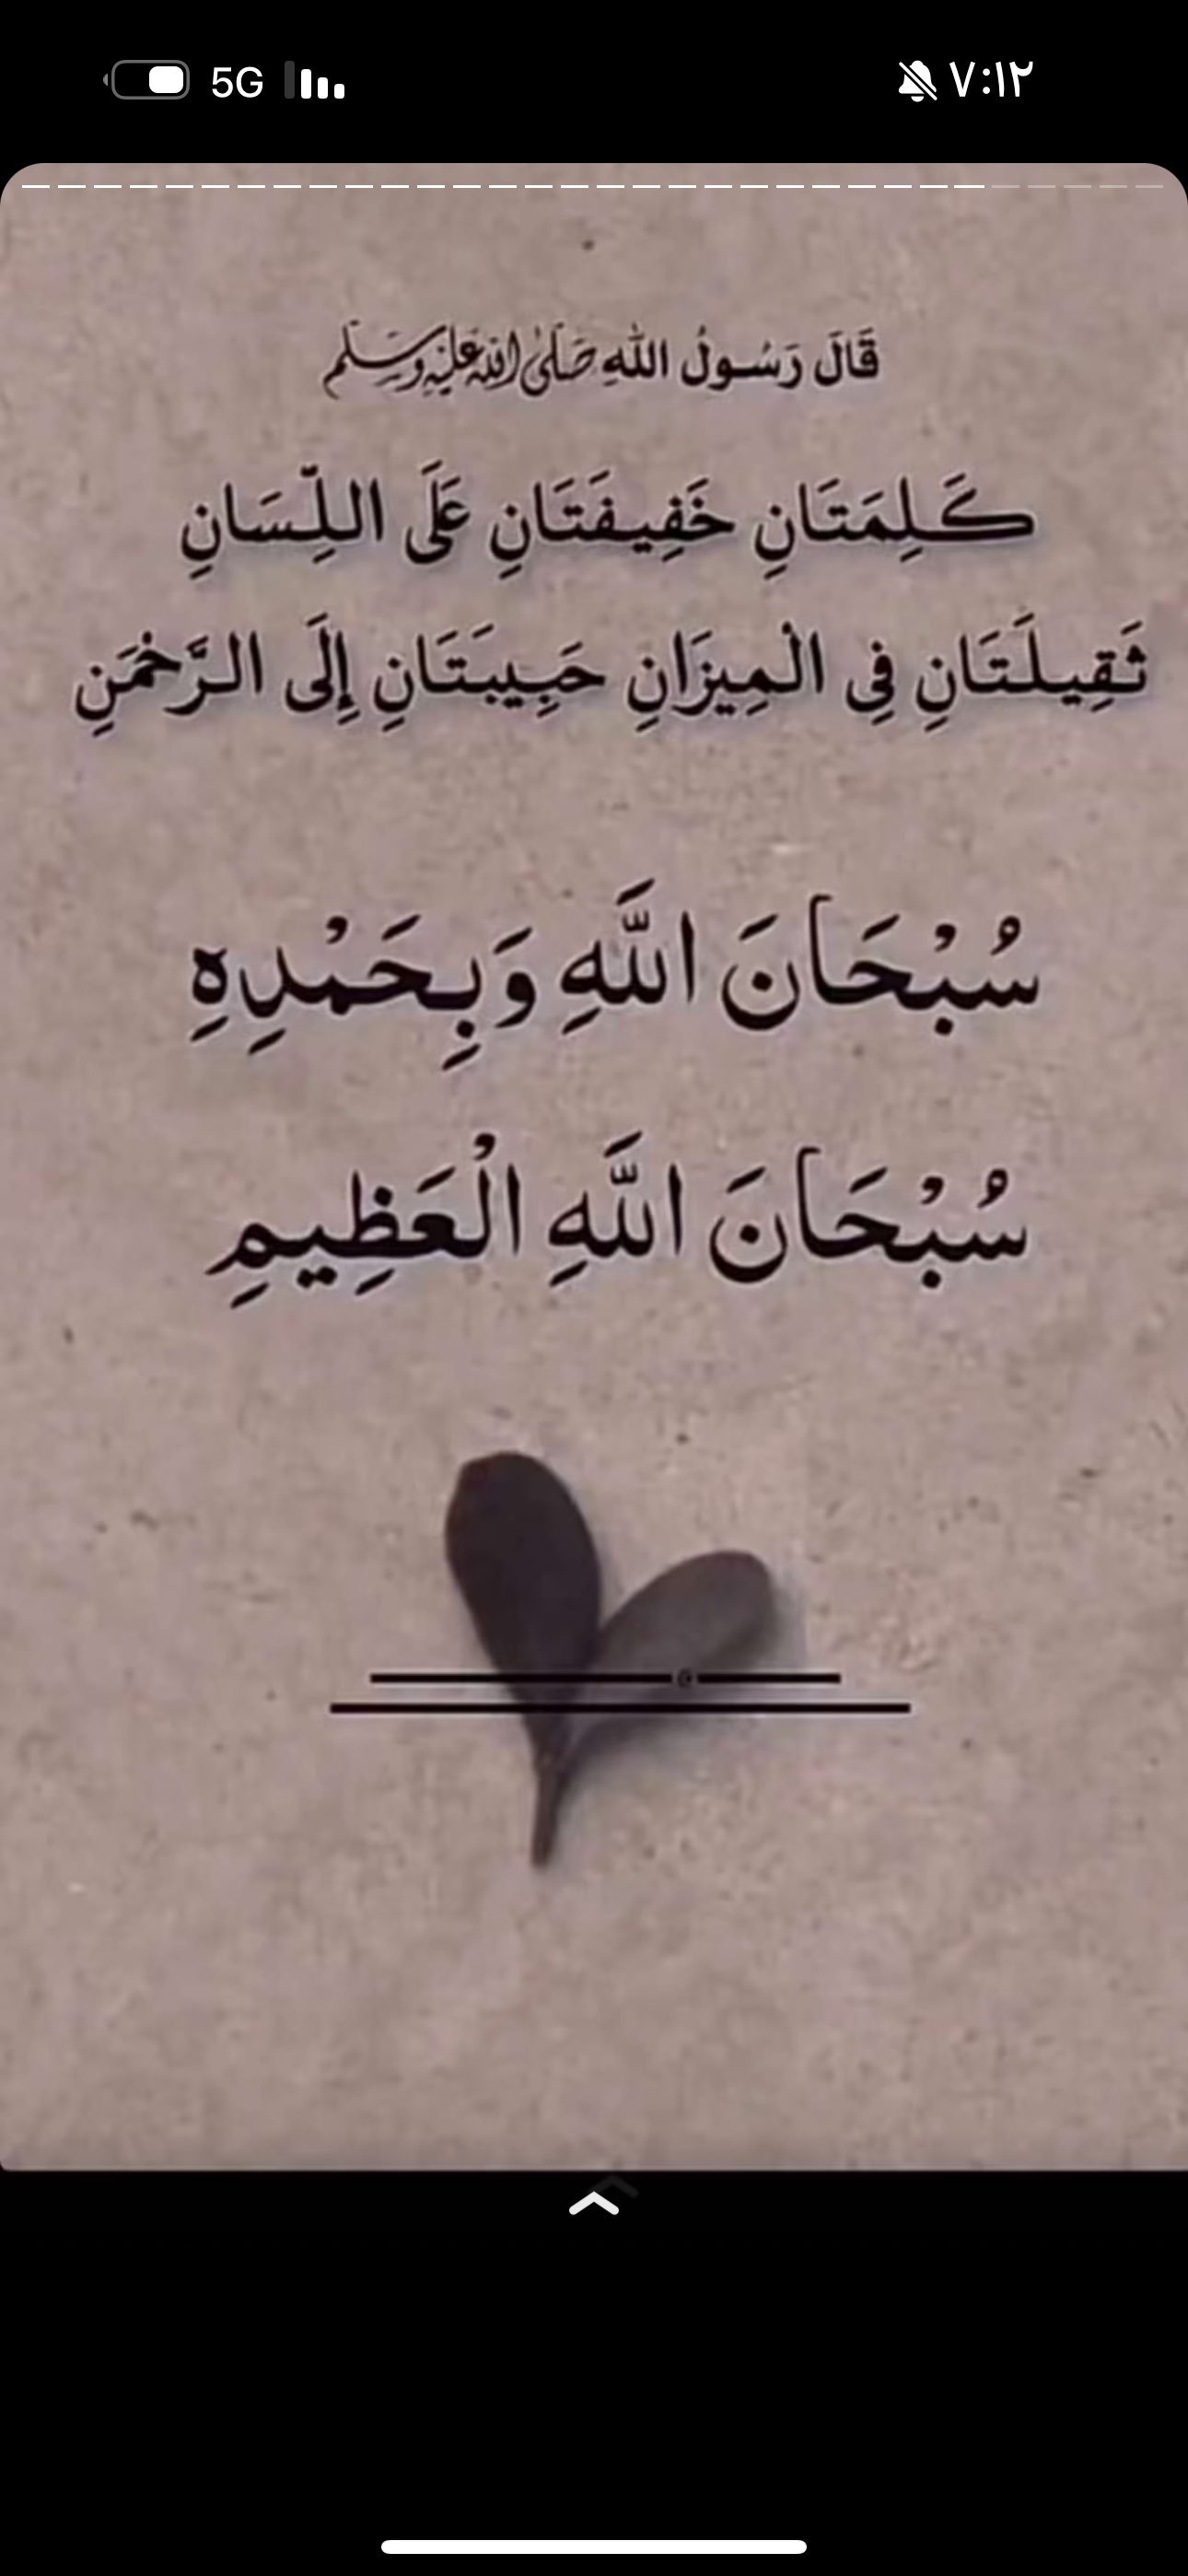 ٧:١٢
5G
قَالَ رَسُولُ اللهِ صَلَّى اللهُ عَلَيْهِ وَسَلَّم
كَلِمَتَانِ خَفِيفَتَانِ عَلَى اللِّسَانِ
ثَقِيلَتَانِ فِي الْمِيزَانِ حَبِيبَتَانِ إِلَى الرَّحْمَنِ
سُبْحَانَ اللَّهِ وَبِحَمْدِهِ
سُبْحَانَ اللَّهِ الْعَظِيمِ